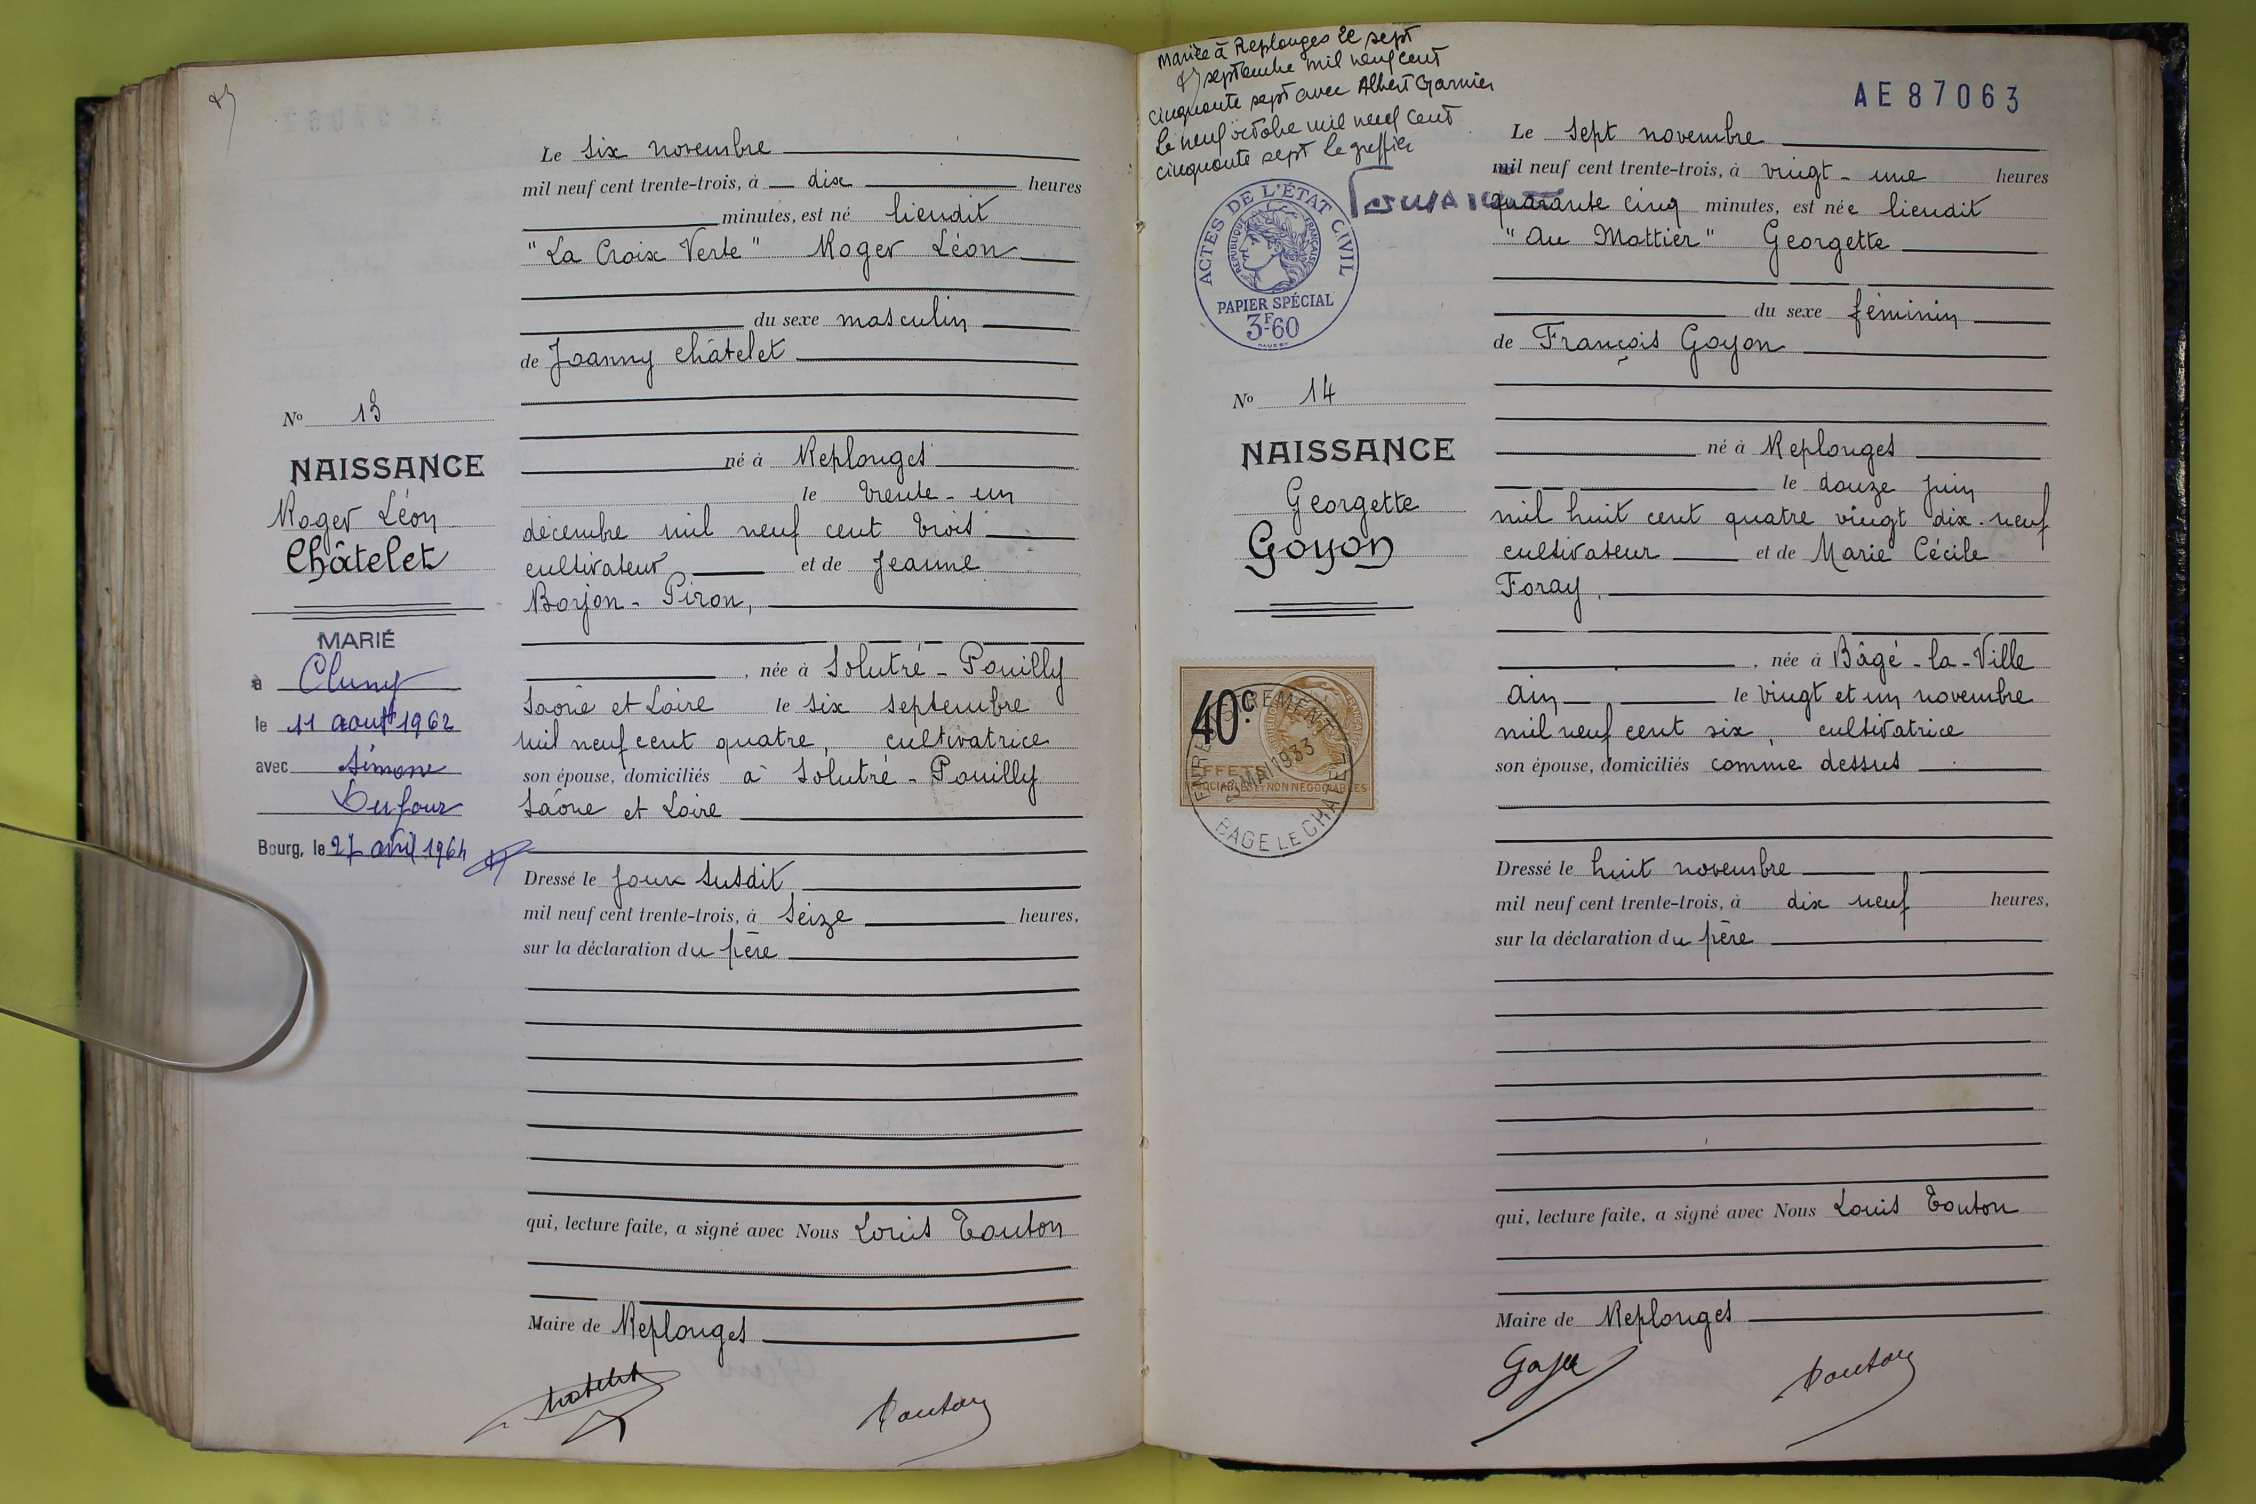 Le six novembre
mil neuf cent trente-trois, à dix heures
minutes, est né lieudit
"La Croix Verte" Roger Léon
du sexe masculin
de Joanny Châtelet
né à Replonges
le trente-un
décembre mil neuf cent trois
cultivateur et de Jeanne
Borjon-Piron,
, née à Solutré-Pouilly
Saône et Loire le six septembre
mil neuf cent quatre, cultivatrice
son épouse, domiciliés à Solutré-Pouilly
Saône et Loire
Dressé le jour susdit
mil neuf cent trente-trois, à seize heures,
sur la déclaration du père
qui, lecture faite, a signé avec Nous Louis Touton
Maire de Replonges
Chatelet Touton
No 13
NAISSANCE
Roger Léon
Châtelet
MARIÉ
à Cluny
le 11 août 1962
avec Simone
Dufour
Bourg, le 27 avril 1964
Mariée à Replonges le sept
septembre mil neuf cent
cinquante sept avec Albert Garnier
le neuf octobre mil neuf cent
cinquante sept le greffier
ACTES DE L'ÉTAT CIVIL
RÉPUBLIQUE FRANÇAISE
PAPIER SPÉCIAL
3F.60
No 14
NAISSANCE
Georgette
Goyon
40c
ENREGISTREMENT
23 MAI 1933
EFFETS
NÉGOCIABLES ET NON NÉGOCIABLES
BAGE LE CHATEL
AE87063
Le sept novembre
mil neuf cent trente-trois, à vingt-une heures
quarante cinq minutes, est née lieudit
"Au Mottier" Georgette
du sexe féminin
de François Goyon
né à Replonges
le douze juin
mil huit cent quatre vingt dix-neuf
cultivateur et de Marie Cécile
Foray,
, née à Bâgé-la-Ville
Ain le vingt et un novembre
mil neuf cent six, cultivatrice
son épouse, domiciliés comme dessus
Dressé le huit novembre
mil neuf cent trente-trois, à dix neuf heures,
sur la déclaration du père
qui, lecture faite, a signé avec Nous Louis Touton
Maire de Replonges
Goyon Touton